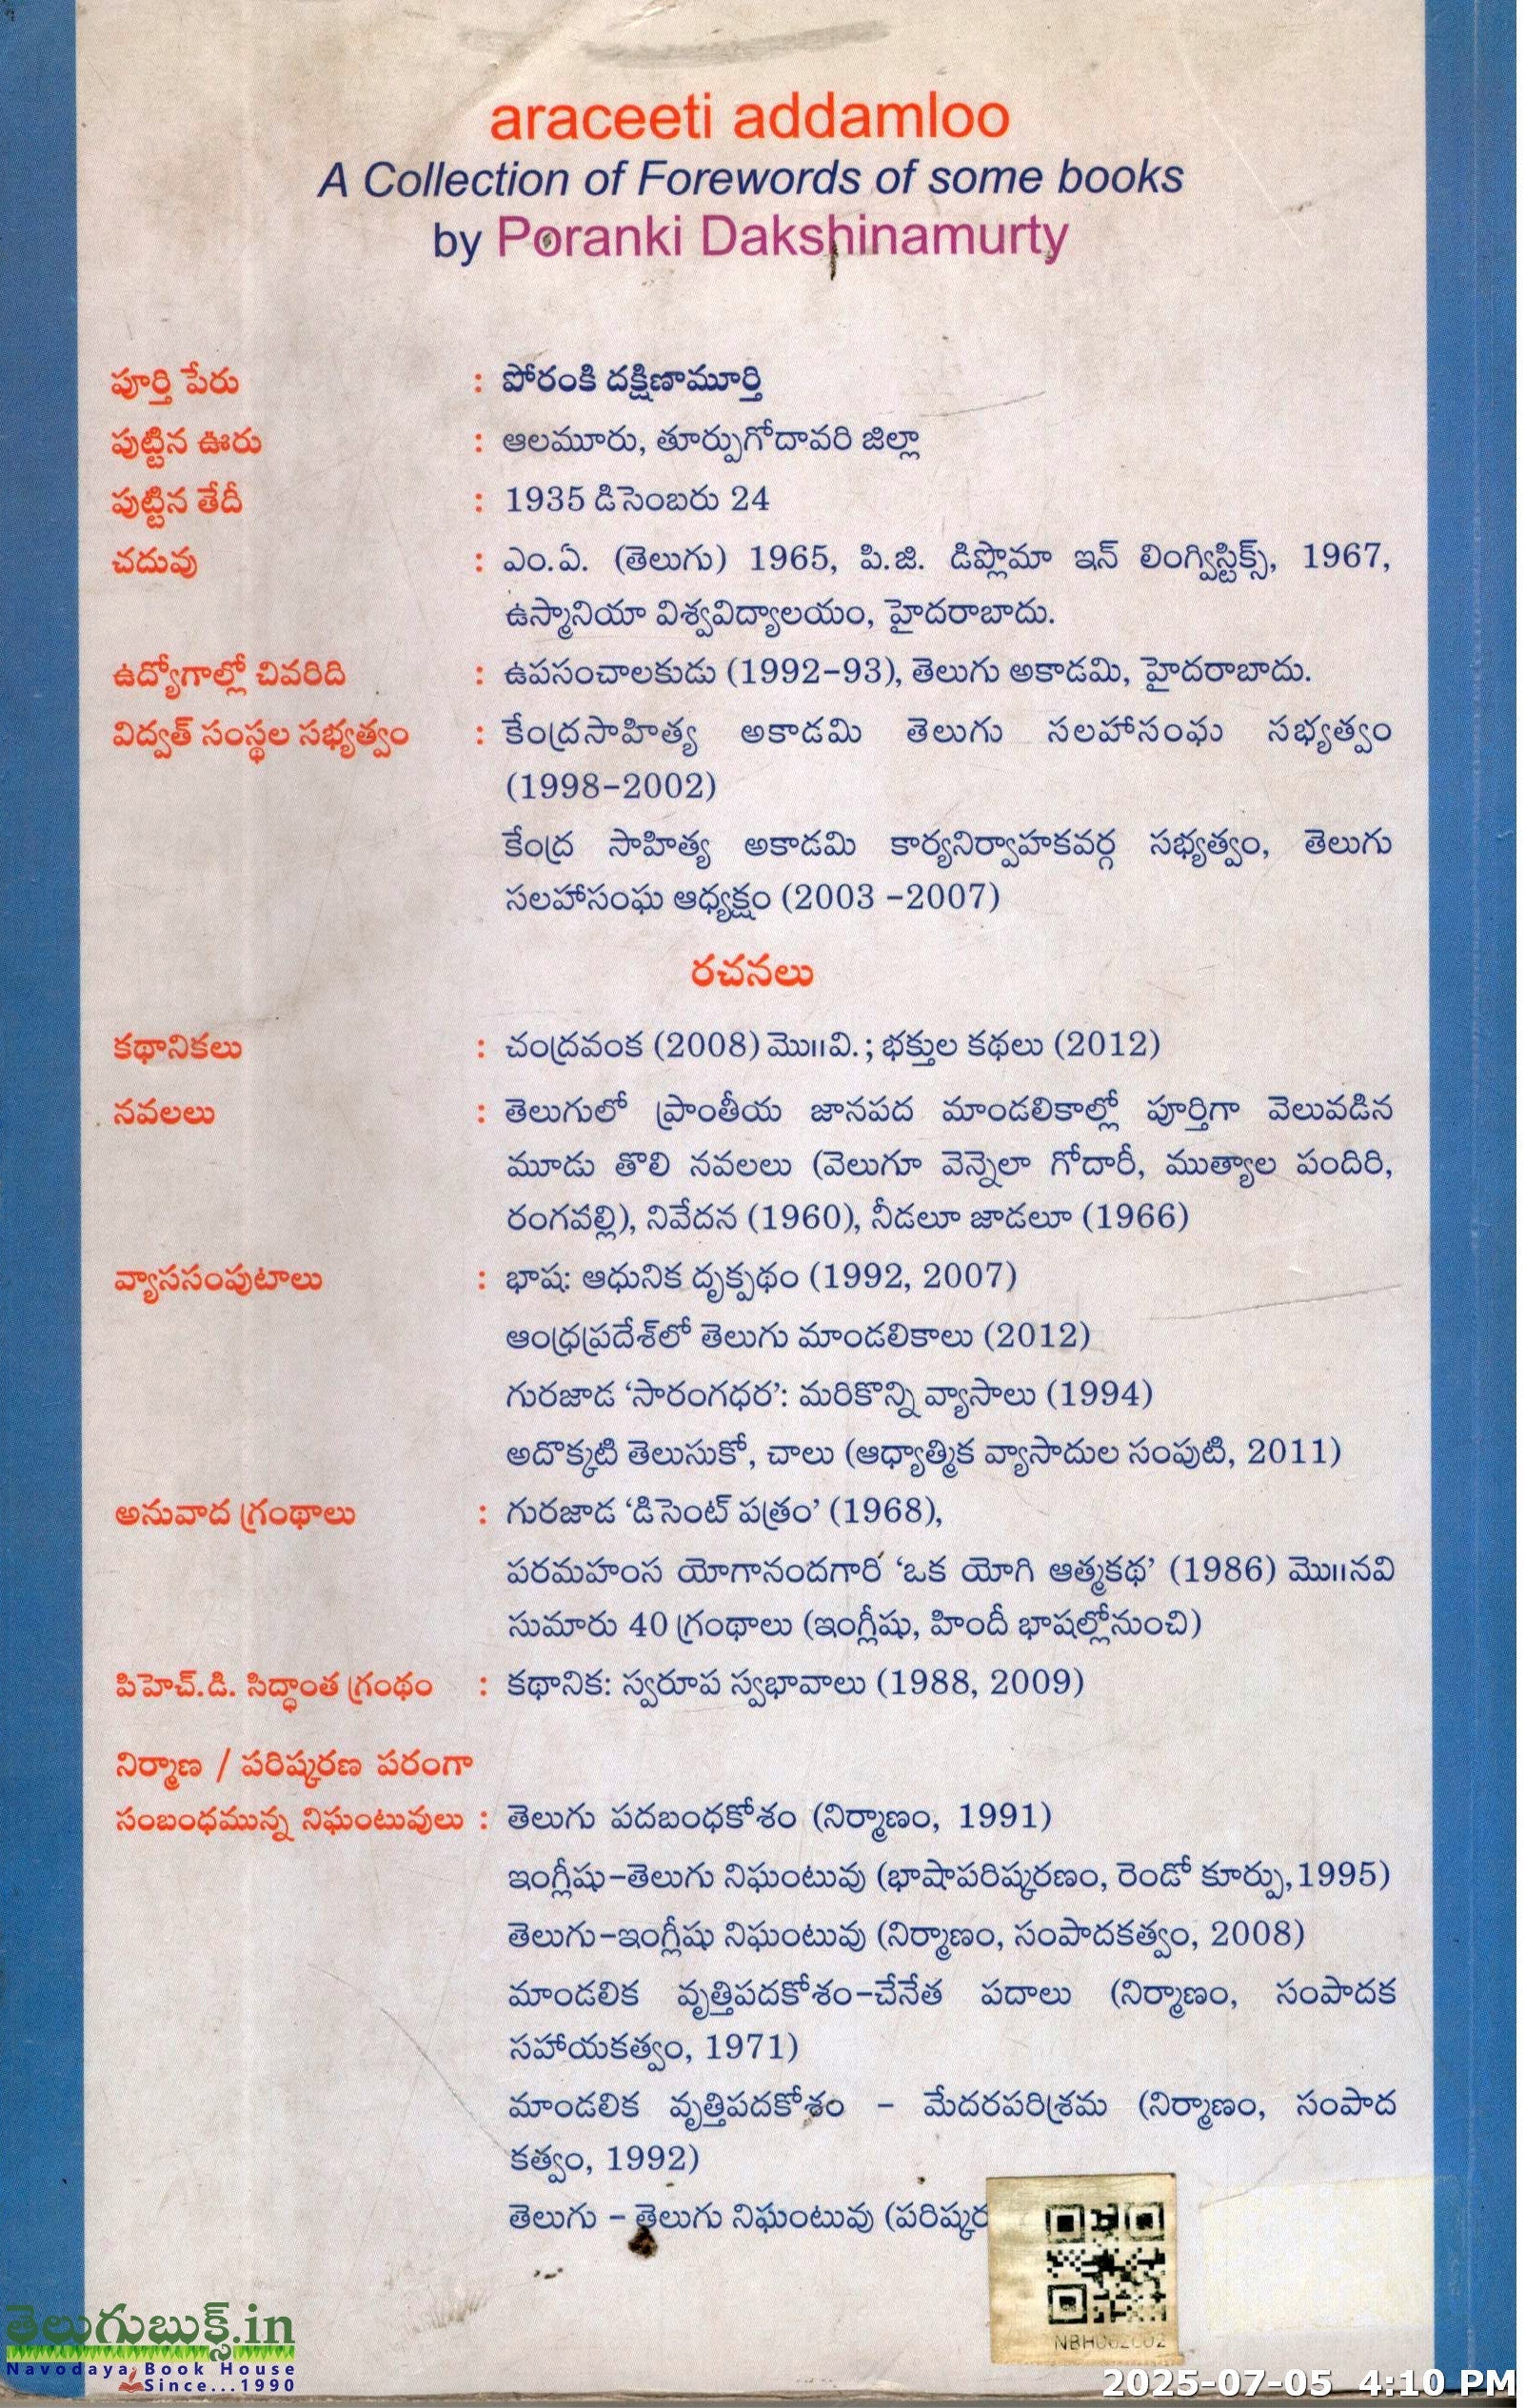 araceeti addamloo
A Collection of Forewords of some books
by Poranki Dakshinamurty
పూర్తి పేరు : పోరంకి దక్షిణామూర్తి
పుట్టిన ఊరు : ఆలమూరు, తూర్పుగోదావరి జిల్లా
పుట్టిన తేదీ : 1935 డిసెంబరు 24
చదువు : ఎం.ఏ. (తెలుగు) 1965, పి.జి. డిప్లొమా ఇన్ లింగ్విస్టిక్స్, 1967,
ఉస్మానియా విశ్వవిద్యాలయం, హైదరాబాదు.
ఉద్యోగాల్లో చివరిది : ఉపసంచాలకుడు (1992-93), తెలుగు అకాడమి, హైదరాబాదు.
విద్వత్ సంస్థల సభ్యత్వం : కేంద్రసాహిత్య అకాడమి తెలుగు సలహాసంఘ సభ్యత్వం
(1998-2002)
కేంద్ర సాహిత్య అకాడమి కార్యనిర్వాహకవర్గ సభ్యత్వం, తెలుగు
సలహాసంఘ ఆధ్యక్షం (2003 -2007)
రచనలు
కథానికలు : చంద్రవంక (2008) మొ॥వి. ; భక్తుల కథలు (2012)
నవలలు : తెలుగులో ప్రాంతీయ జానపద మాండలికాల్లో పూర్తిగా వెలువడిన
మూడు తొలి నవలలు (వెలుగూ వెన్నెలా గోదారీ, ముత్యాల పందిరి,
రంగవల్లి), నివేదన (1960), నీడలూ జాడలూ (1966)
వ్యాససంపుటాలు : భాష: ఆధునిక దృక్పథం (1992, 2007)
ఆంధ్రప్రదేశ్‌లో తెలుగు మాండలికాలు (2012)
గురజాడ ‘సారంగధర’: మరికొన్ని వ్యాసాలు (1994)
అదొక్కటి తెలుసుకో, చాలు (ఆధ్యాత్మిక వ్యాసాదుల సంపుటి, 2011)
అనువాద గ్రంథాలు : గురజాడ ‘డిసెంట్ పత్రం’ (1968),
పరమహంస యోగానందగారి ‘ఒక యోగి ఆత్మకథ’ (1986) మొ॥నవి
సుమారు 40 గ్రంథాలు (ఇంగ్లీషు, హిందీ భాషల్లోనుంచి)
పిహెచ్.డి. సిద్ధాంత గ్రంథం : కథానిక: స్వరూప స్వభావాలు (1988, 2009)
నిర్మాణ / పరిష్కరణ పరంగా
సంబంధమున్న నిఘంటువులు : తెలుగు పదబంధకోశం (నిర్మాణం, 1991)
ఇంగ్లీషు-తెలుగు నిఘంటువు (భాషాపరిష్కరణం, రెండో కూర్పు,1995)
తెలుగు-ఇంగ్లీషు నిఘంటువు (నిర్మాణం, సంపాదకత్వం, 2008)
మాండలిక వృత్తిపదకోశం-చేనేత పదాలు (నిర్మాణం, సంపాదక
సహాయకత్వం, 1971)
మాండలిక వృత్తిపదకోశం - మేదరపరిశ్రమ (నిర్మాణం, సంపాద
కత్వం, 1992)
తెలుగు - తెలుగు నిఘంటువు (పరిష్కర
తెలుగుబుక్స్.in
Navodaya Book House
Since...1990
2025-07-05 4:10 PM